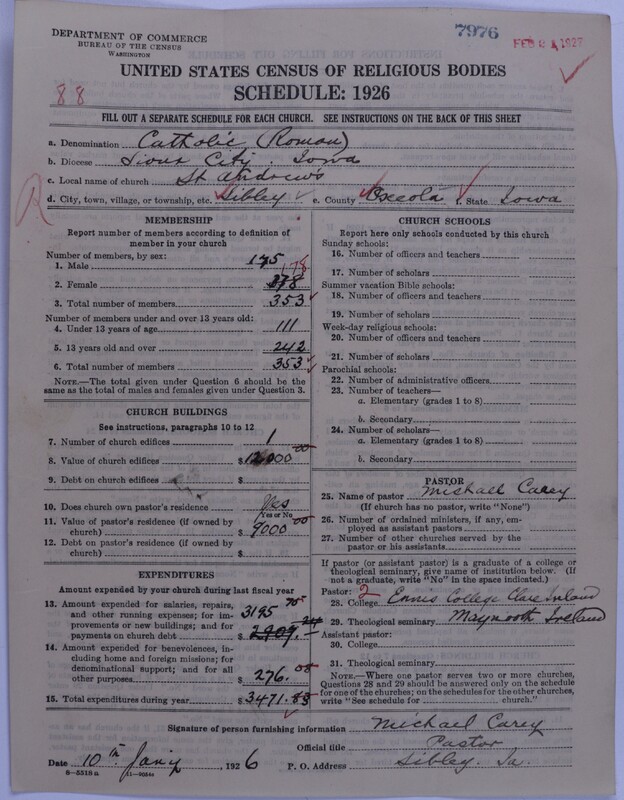 DEPARTMENT OF COMMERCE
BUREAU OF THE CENSUS
WASHINGTON
7976
FEB 21 1927
UNITED STATES CENSUS OF RELIGIOUS BODIES
88
SCHEDULE: 1926
FILL OUT A SEPARATE SCHEDULE FOR EACH CHURCH. SEE INSTRUCTIONS ON THE BACK OF THIS SHEET
a. Denomination Catholic (Roman)
b. Diocese Sioux City. Iowa
c. Local name of church St Andrews
d. City, town, village, or township, etc. Sibley e. County Osceola f. State Iowa
R
MEMBERSHIP
Report number of members according to definition of member in your church
Number of members, by sex:
1. Male 175
2. Female 178
3. Total number of members 353
Number of members under and over 13 years old:
4. Under 13 years of age 111
5. 13 years old and over 242
6. Total number of members 353
NOTE.—The total given under Question 6 should be the
same as the total of males and females given under Question 3.
CHURCH BUILDINGS
See instructions, paragraphs 10 to 12
7. Number of church edifices 1
8. Value of church edifices $12000 00
9. Debt on church edifices $
10. Does church own pastor's residence Yes
Yes or No
11. Value of pastor's residence (if owned by
church) $9000 00
12. Debt on pastor's residence (if owned by
church) $
EXPENDITURES
Amount expended by your church during last fiscal year
13. Amount expended for salaries, repairs,
and other running expenses; for im-
provements or new buildings; and for
payments on church debt $ 3195
14. Amount expended for benevolences,
including home and foreign missions; for
denominational support; and for all
other purposes $ 276.
15. Total expenditures during year $3471.
CHURCH SCHOOLS
Report here only schools conducted by this church
Sunday schools:
16. Number of officers and teachers
17. Number of scholars
Summer vacation Bible schools:
18. Number of officers and teachers
19. Number of scholars
Week-day religious schools:
20. Number of officers and teachers
21. Number of scholars
Parochial schools:
22. Number of administrative officers
23. Number of teachers—
a. Elementary (grades 1 to 8)
b. Secondary
24. Number of scholars—
a. Elementary (grades 1 to 8)
b. Secondary
PASTOR
25. Name of pastor Michael Carey
(If church has no pastor, write "None")
26. Number of ordained ministers, if any, em-
ployed as assistant pastors
27. Number of other churches served by the
pastor or his assistants
If pastor (or assistant pastor) is a graduate of a college or
theological seminary, give name of institution below. (If
not a graduate, write "No" in the space indicated.)
Pastor: 2
28. College Ennis College Clare Ireland
29. Theological seminary Maynooth Ireland
Assistant pastor:
30. College
31. Theological seminary
NOTE.—Where one pastor serves two or more churches,
Questions 28 and 29 should be answered only on the schedule
for one of the churches; on the schedules for the other churches,
write "See schedule for church."
Signature of person furnishing information Michael Carey
Official title Pastor
Date 10th Jan'y, 1926 P. O. Address Sibley Ia.
8—5318a 11—9044